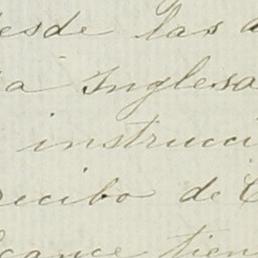 desde las a
a Inglesa
instrucci
recibo de C
lcance tien